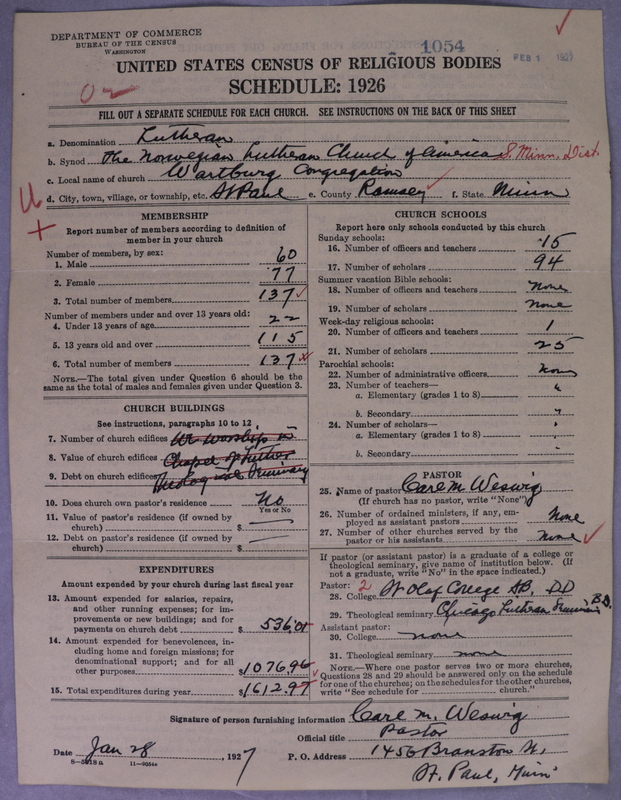 DEPARTMENT OF COMMERCE
BUREAU OF THE CENSUS
WASHINGTON
1054
FEB 1 1927
UNITED STATES CENSUS OF RELIGIOUS BODIES
SCHEDULE: 1926
FILL OUT A SEPARATE SCHEDULE FOR EACH CHURCH. SEE INSTRUCTIONS ON THE BACK OF THIS SHEET
a. Denomination Lutheran
b. Synod The Norwegian Lutheran Church of America S. Minn. Dist.
c. Local name of church Wartburg Congregation
d. City, town, village, or township, etc. St Paul e. County Ramsey f. State Minn
MEMBERSHIP
Report number of members according to definition of
member in your church
Number of members, by sex:
1. Male 60
2. Female 77
3. Total number of members 137
Number of members under and over 13 years old:
4. Under 13 years of age 22
5. 13 years old and over 115
6. Total number of members 137
NOTE.—The total given under Question 6 should be the
same as the total of males and females given under Question 3.
CHURCH BUILDINGS
See instructions, paragraphs 10 to 12
7. Number of church edifices We worship in
8. Value of church edifices Chapel of Luther
9. Debt on church edifices Theological Seminary
10. Does church own pastor's residence No
Yes or No
11. Value of pastor's residence (if owned by
church) $
12. Debt on pastor's residence (if owned by
church) $
EXPENDITURES
Amount expended by your church during last fiscal year
13. Amount expended for salaries, repairs,
and other running expenses; for im-
provements or new buildings; and for
payments on church debt $ 536.01
14. Amount expended for benevolences, in-
cluding home and foreign missions; for
denominational support; and for all
other purposes $1076.96
15. Total expenditures during year $1612.97
CHURCH SCHOOLS
Report here only schools conducted by this church
Sunday schools:
16. Number of officers and teachers 15
17. Number of scholars 94
Summer vacation Bible schools:
18. Number of officers and teachers none
19. Number of scholars none
Week-day religious schools:
20. Number of officers and teachers 1
21. Number of scholars 25
Parochial schools:
22. Number of administrative officers none
23. Number of teachers—
a. Elementary (grades 1 to 8) "
b. Secondary "
24. Number of scholars—
a. Elementary (grades 1 to 8) "
b. Secondary "
PASTOR
25. Name of pastor Carl M. Weswig
(If church has no pastor, write "None")
26. Number of ordained ministers, if any, em-
ployed as assistant pastors None
27. Number of other churches served by the
pastor or his assistants None
If pastor (or assistant pastor) is a graduate of a college or
theological seminary, give name of institution below. (If
not a graduate, write "No" in the space indicated.)
Pastor: 2
28. College St Olaf College AB. DD
29. Theological seminary Chicago Lutheran Seminary B.D.
Assistant pastor:
30. College none
31. Theological seminary none
NOTE.—Where one pastor serves two or more churches,
Questions 28 and 29 should be answered only on the schedule
for one of the churches; on the schedules for the other churches,
write "See schedule for church."
Signature of person furnishing information Carl M. Weswig
Official title Pastor
Date Jan 28, 1927
P. O. Address 1456 Branston St,
St. Paul, Minn
8—5918a 11—9054a